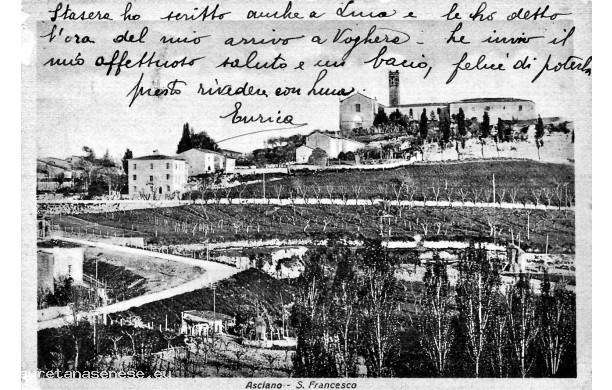 Stasera ho scritto anche a Luca e le ho detto
l'ora del mio arrivo a Voghera - Le invio il
mio affettuoso saluto e un bacio, felice di poterla
presto rivedere con Luca.
Enrica
Asciano - S. Francesco
uretanasenese.eu